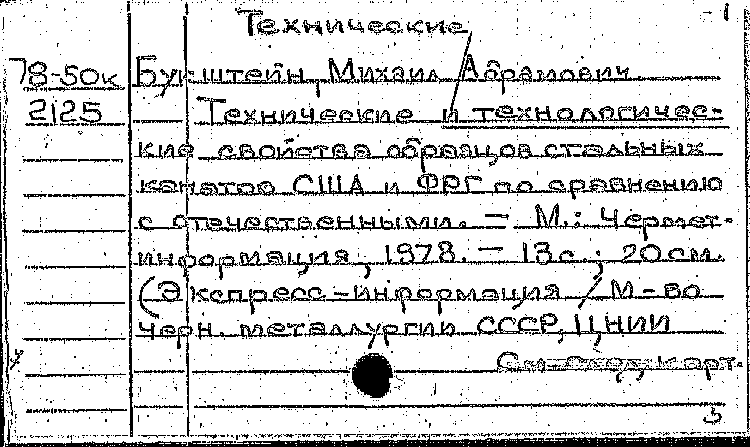 Технические
- 1
78-50к Букштейн, Михаил Абрамович.
2125 Технические и технологичес-
кие свойства образцов стальных
канатов США и ФРГ по сравнению
с отечественными. — М.: Чермет-
информация, 1978. — 13 с.; 20 см.
(Экспресс-информация / М-во
черн. металлургии СССР, ЦНИИ
См. след. карт.